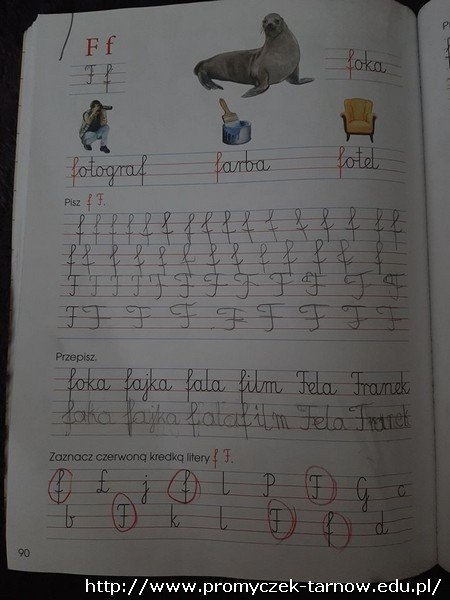 F f
F f
foka
fotograf farba fotel
Pisz f F.
f f f f f f f f f f f f f f f f f
f f f f f f f f f f f f f
F F F F F F F F F F F F
F F F F F F F F F
Przepisz.
foka fajka fala film Fela Franek
foka fajka fala film Fela Franek
Zaznacz czerwoną kredką litery f F.
f Ł j f l P F G c
b F k l F f d
90
http://www.promyczek-tarnow.edu.pl/